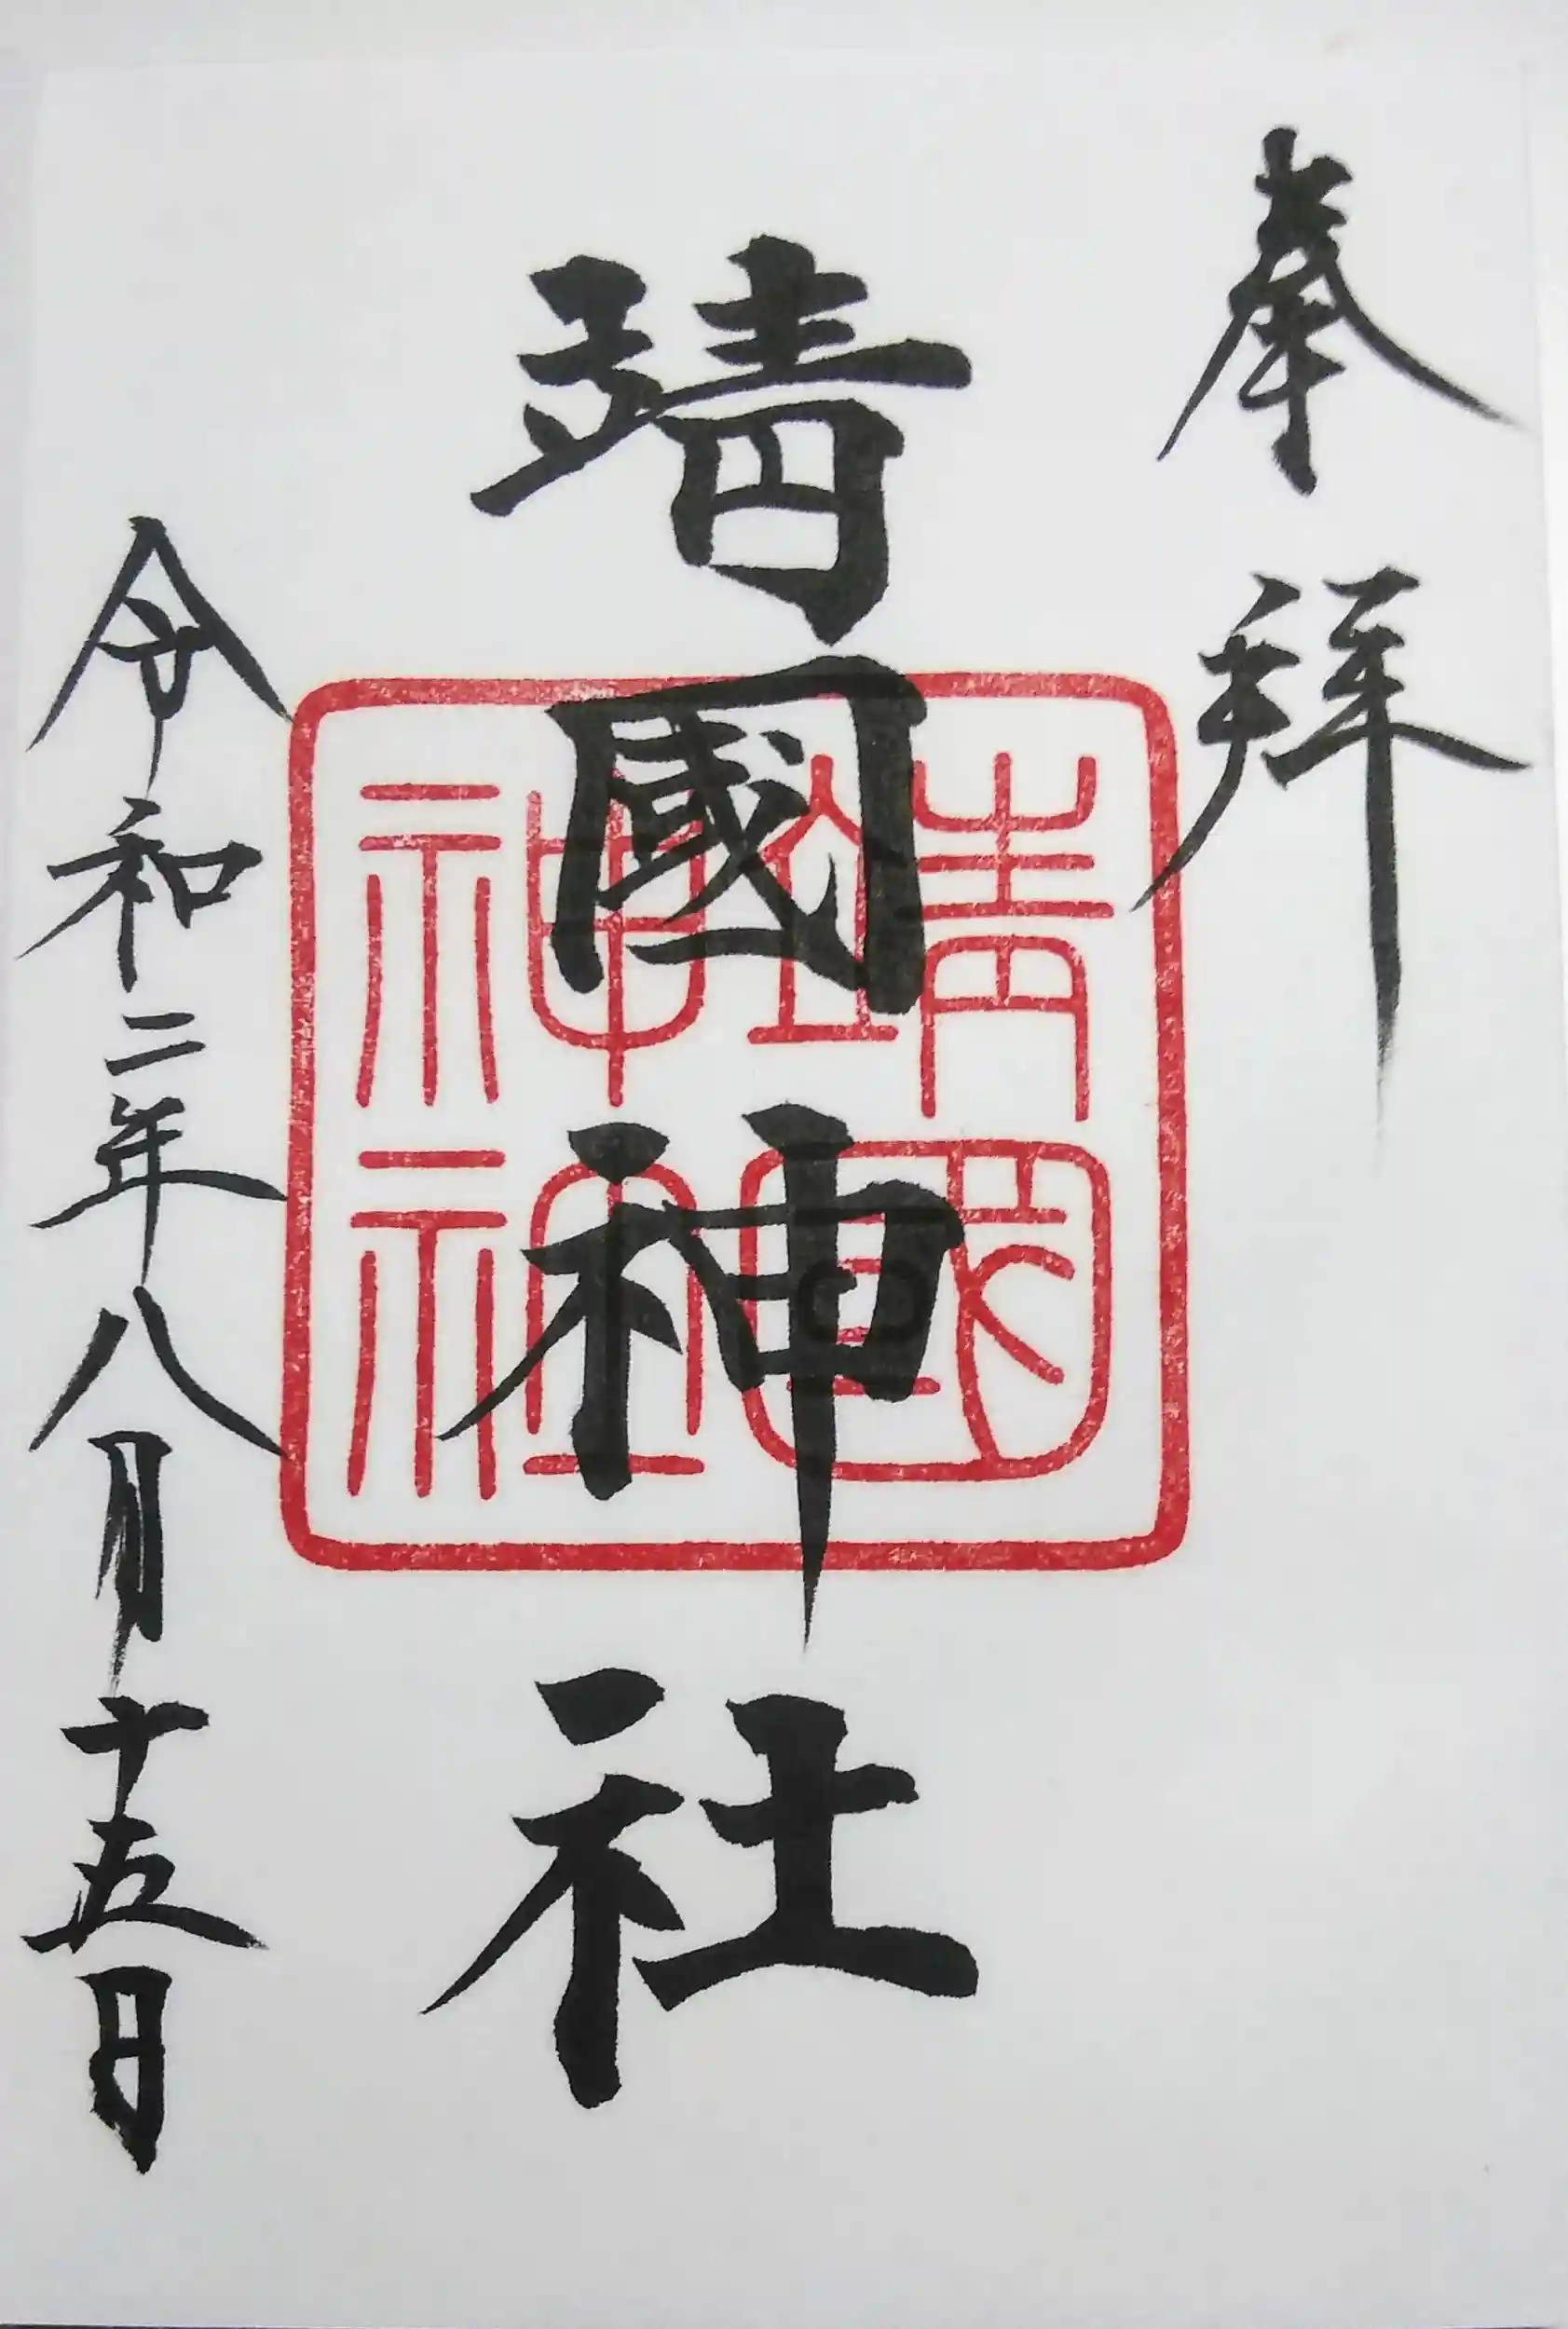 奉拝
靖國神社
靖國
神社
令和二年八月十五日